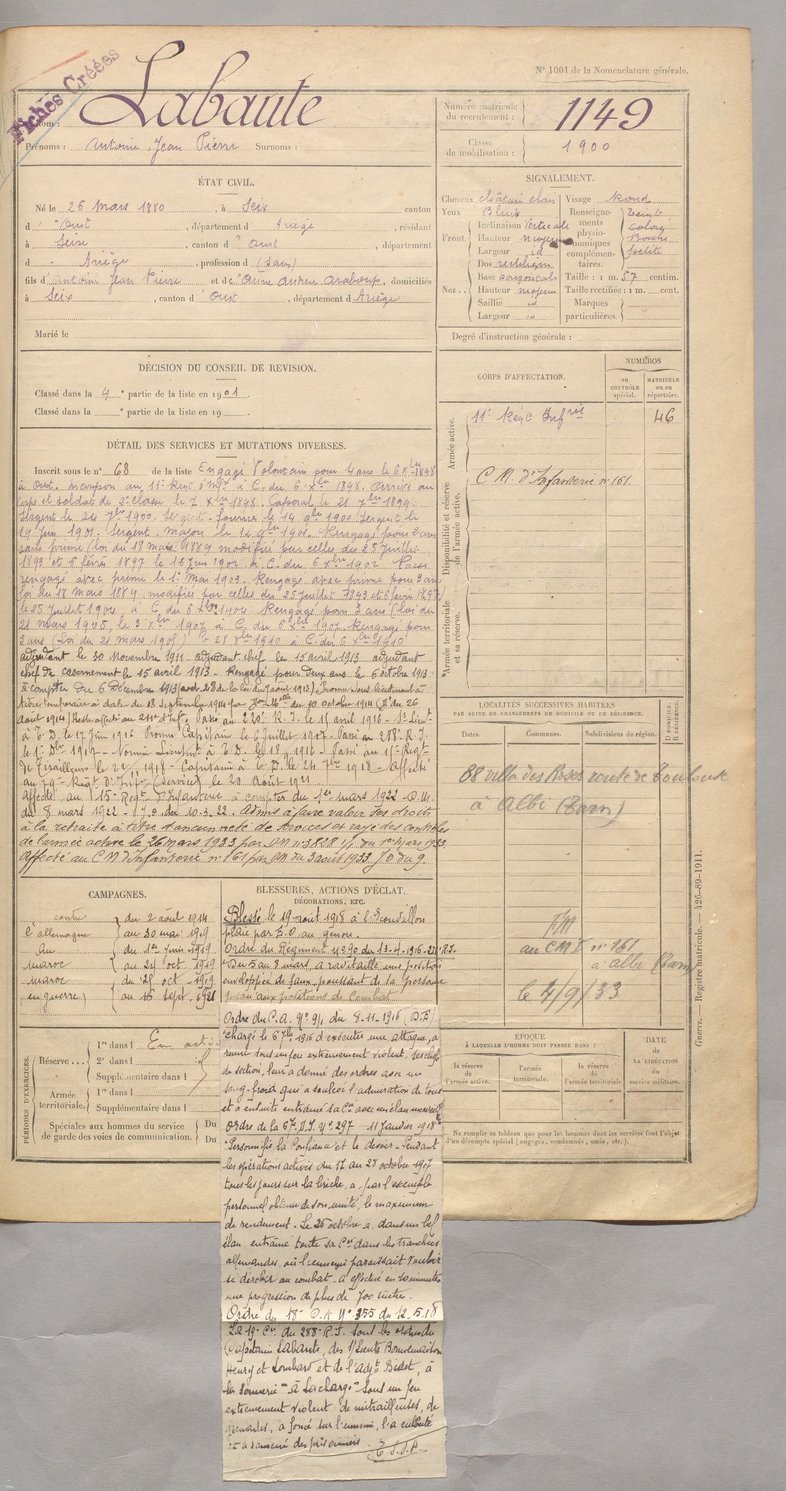 Fiches Créées
N° 1001 de la Nomenclature générale.
Nom : Labaute
Prénoms : Antoine Jean Pierre Surnoms :
Numéro matricule du recrutement : 1149
Classe de mobilisation : 1900
ÉTAT CIVIL.
Né le 26 Mars 1880, à Seix canton
d'Oust, département d Ariège, résidant
à Seix, canton d'Oust, département
d Ariège, profession d (sans)
fils d'Antoine Jean Pierre et de domiciliés
à Seix, canton d'Oust, département d'Ariège
Marié le
SIGNALEMENT.
Cheveux châtain clair Visage Rond
Yeux Bleus
Front. Inclinaison verticale
Hauteur moyenne
Largeur id
Nez. Dos rectiligne
Base
Hauteur moyen
Saillie id
Largeur id
Renseignements physionomiques complémentaires. teint coloré bouche petite
Taille : 1 m. 57 centim.
Taille rectifiée : 1 m. cent.
Marques particulières.
Degré d'instruction générale :
DÉCISION DU CONSEIL DE REVISION.
Classé dans la 4e partie de la liste en 1901
Classé dans la e partie de la liste en 19
CORPS D'AFFECTATION.
NUMÉROS
AU CONTRÔLE SPÉCIAL.
MATRICULE OU AU RÉPERTOIRE.
Armée active.
11e Régt Infrie 46
Disponibilité et réserve de l'armée active.
C M. d'Infanterie n° 161.
Armée territoriale et sa réserve.
DÉTAIL DES SERVICES ET MUTATIONS DIVERSES.
Inscrit sous le n° 68 de la liste Engagé Volontaire pour 4 ans le 6 Xbre 1898
à Oust. Incorporé au 11e Régt d'Infie à C. du 6 Xbre 1898. Arrivé au
Corps et soldat de 2e classe le 7 Xbre 1898. Caporal le 21 7bre 1899.
Sergent le 24 7bre 1900. Sergent-fourrier le 14 9bre 1900 Sergent le
19 Juin 1901. Sergent Major le 14 9bre 1901. Rengagé pour 2 ans
sans prime (loi du 18 mars 1889 modifiée par celles des 25 Juillet
1893 et 5 février 1897 le 16 Juin 1902 à C. du 6 Xbre 1902
rengagé avec prime le 1er Mai 1903. Rengagé avec prime pour 3 ans
loi du 18 Mars 1889 modifiée par celles des 25 Juillet 1893 et 5 février 1897
le 25 Juillet 1904 à C. du 6 Xbre 1904 Rengagé pour 3 ans (loi du
21 mars 1905, le 3 Xbre 1907 à C. du 6 Xbre 1907. Rengagé pour
3 ans (Loi du 21 mars 1905) le 28 Xbre 1910 à C. du 6 Xbre 1910.
adjudant le 30 Novembre 1911. adjudant chef le 15 avril 1913 adjudant
chef de casernement le 15 avril 1913. Rengagé pour deux ans le 6 octobre 1913
à compter du 6 Décembre 1913 (art. 28 de la loi du 7 aout 1913). Promu sous lieutenant à
titre temporaire à dater du 18 septembre 1914 par du 10 octobre 1914 (D. du 26
Août 1914) Reste affecté au 211e d'Infie. Passé au 220e R.I. le 15 avril 1916 - St Lieut
à T.D. le 17 Juin 1916 Promu Capitaine le 6 Juillet 1917. Passé au 288e R.I.
le 1er 1917 - Nommé Lieutent à T.D. le 18 1916 - Passé au 11e Regt
de Tirailleurs le 22 1918 - Capitaine à T.D. le 24 7bre 1918 - Affecté
au 79e Régt d'Infie (Service) le 20 Août 1921
Affecté au 15e Régt d'Infanterie à compter du 1er mars 1922 - D.M.
du 8 mars 1922 - J.O du 10.3.22. Admis à faire valoir ses droits
à la retraite à titre d'ancienneté de services et rayé des contrôles
de l'armée active le 26 mars 1933 par DM n° 3828 1/1 du 1er Mars 1933
affecté au C M d'Infanterie n° 161 par DM du 3 août 1933 J O du 9.
LOCALITÉS SUCCESSIVES HABITÉES
PAR SUITE DE CHANGEMENTS DE DOMICILE OU DE RÉSIDENCE.
Dates. Communes. Subdivisions de région. D DOMICILE. R RÉSIDENCE.
88 villa des Roses route de Toulouse
à Albi (Tarn)
FM
au CM I n° 161
à Albi (Tarn)
le 4/9/33
CAMPAGNES.
contre l'allemagne du 2 août 1914 au 30 mai 1919
Au maroc du 1er Juin 1919 au 27 oct 1919
maroc en guerre du 28 oct 1919 au 15 sept. 1921
BLESSURES, ACTIONS D'ÉCLAT,
DÉCORATIONS, ETC.
Blessé le 19 août 1918 à l'Ecouvillon
plaie par E.O au genou.
Ordre du Régiment n° 90 du 13-4-1916 - 211e R.I.
"Du 5 au 8 mars, a ravitaillé une position
enveloppée de faux, poussant de sa personne
jusqu'aux positions de combat
Ordre du C.A. N° 91 du 8.11.1916 (D.E)
"Chargé le 6 7bre 1916 d'exécuter une attaque, a
réuni sous un feu extrêmement violent, ses chefs
de section, leur a donné des ordres avec un
sang-froid qui a soulevé l'admiration de tous
et a ensuite entraîné sa Cie avec un élan
Ordre de la 67e D.I. N° 297 11 Janvier 1918
"Personnifie la Confiance et le devoir. Pendant
les opérations actives du 17 au 28 octobre 1917
tous les jours sur la brèche, a, par l'exemple
personnel obtenu de son unité, le maximum
de rendement. Le 25 octobre a, dans un bel
élan entrainé toute sa Cie dans les tranchées
allemandes, où l'ennemi paraissait vouloir
se dérober au combat, a effectué en 20 minutes
une progression de plus de 700 mètre.
Ordre du 18e C.A N° 355 du 12.5.18
La 19e Cie du 288e R.I. sous les ordres du
Capitaine Labaute, des S/Lieuts Bonnemaison
Henry et Lombard et de l'Adjt Bidot, à
la sonnerie "à la charge" sous un feu
extrêmement violent de mitrailleuses, de
grenades, a foncé sur l'ennemi, l'a culbuté
et a ramené des prisonniers.
PÉRIODES D'EXERCICES.
Réserve... 1re dans l En acti
2e dans l
Supplémentaire dans l
Armée territoriale. 1re dans l
Supplémentaire dans l
Spéciales aux hommes du service de garde des voies de communication. Du
Du
ÉPOQUE
À LAQUELLE L'HOMME DOIT PASSER DANS :
la réserve de l'armée active.
l'armée territoriale.
la réserve de l'armée territoriale.
DATE de la LIBÉRATION du service militaire.
Ne remplir ce tableau que pour les hommes dont les services font l'objet
d'un décompte spécial (engagés, condamnés, omis, etc.).
Guerre. — Registre matricule. — 426-89-1911.